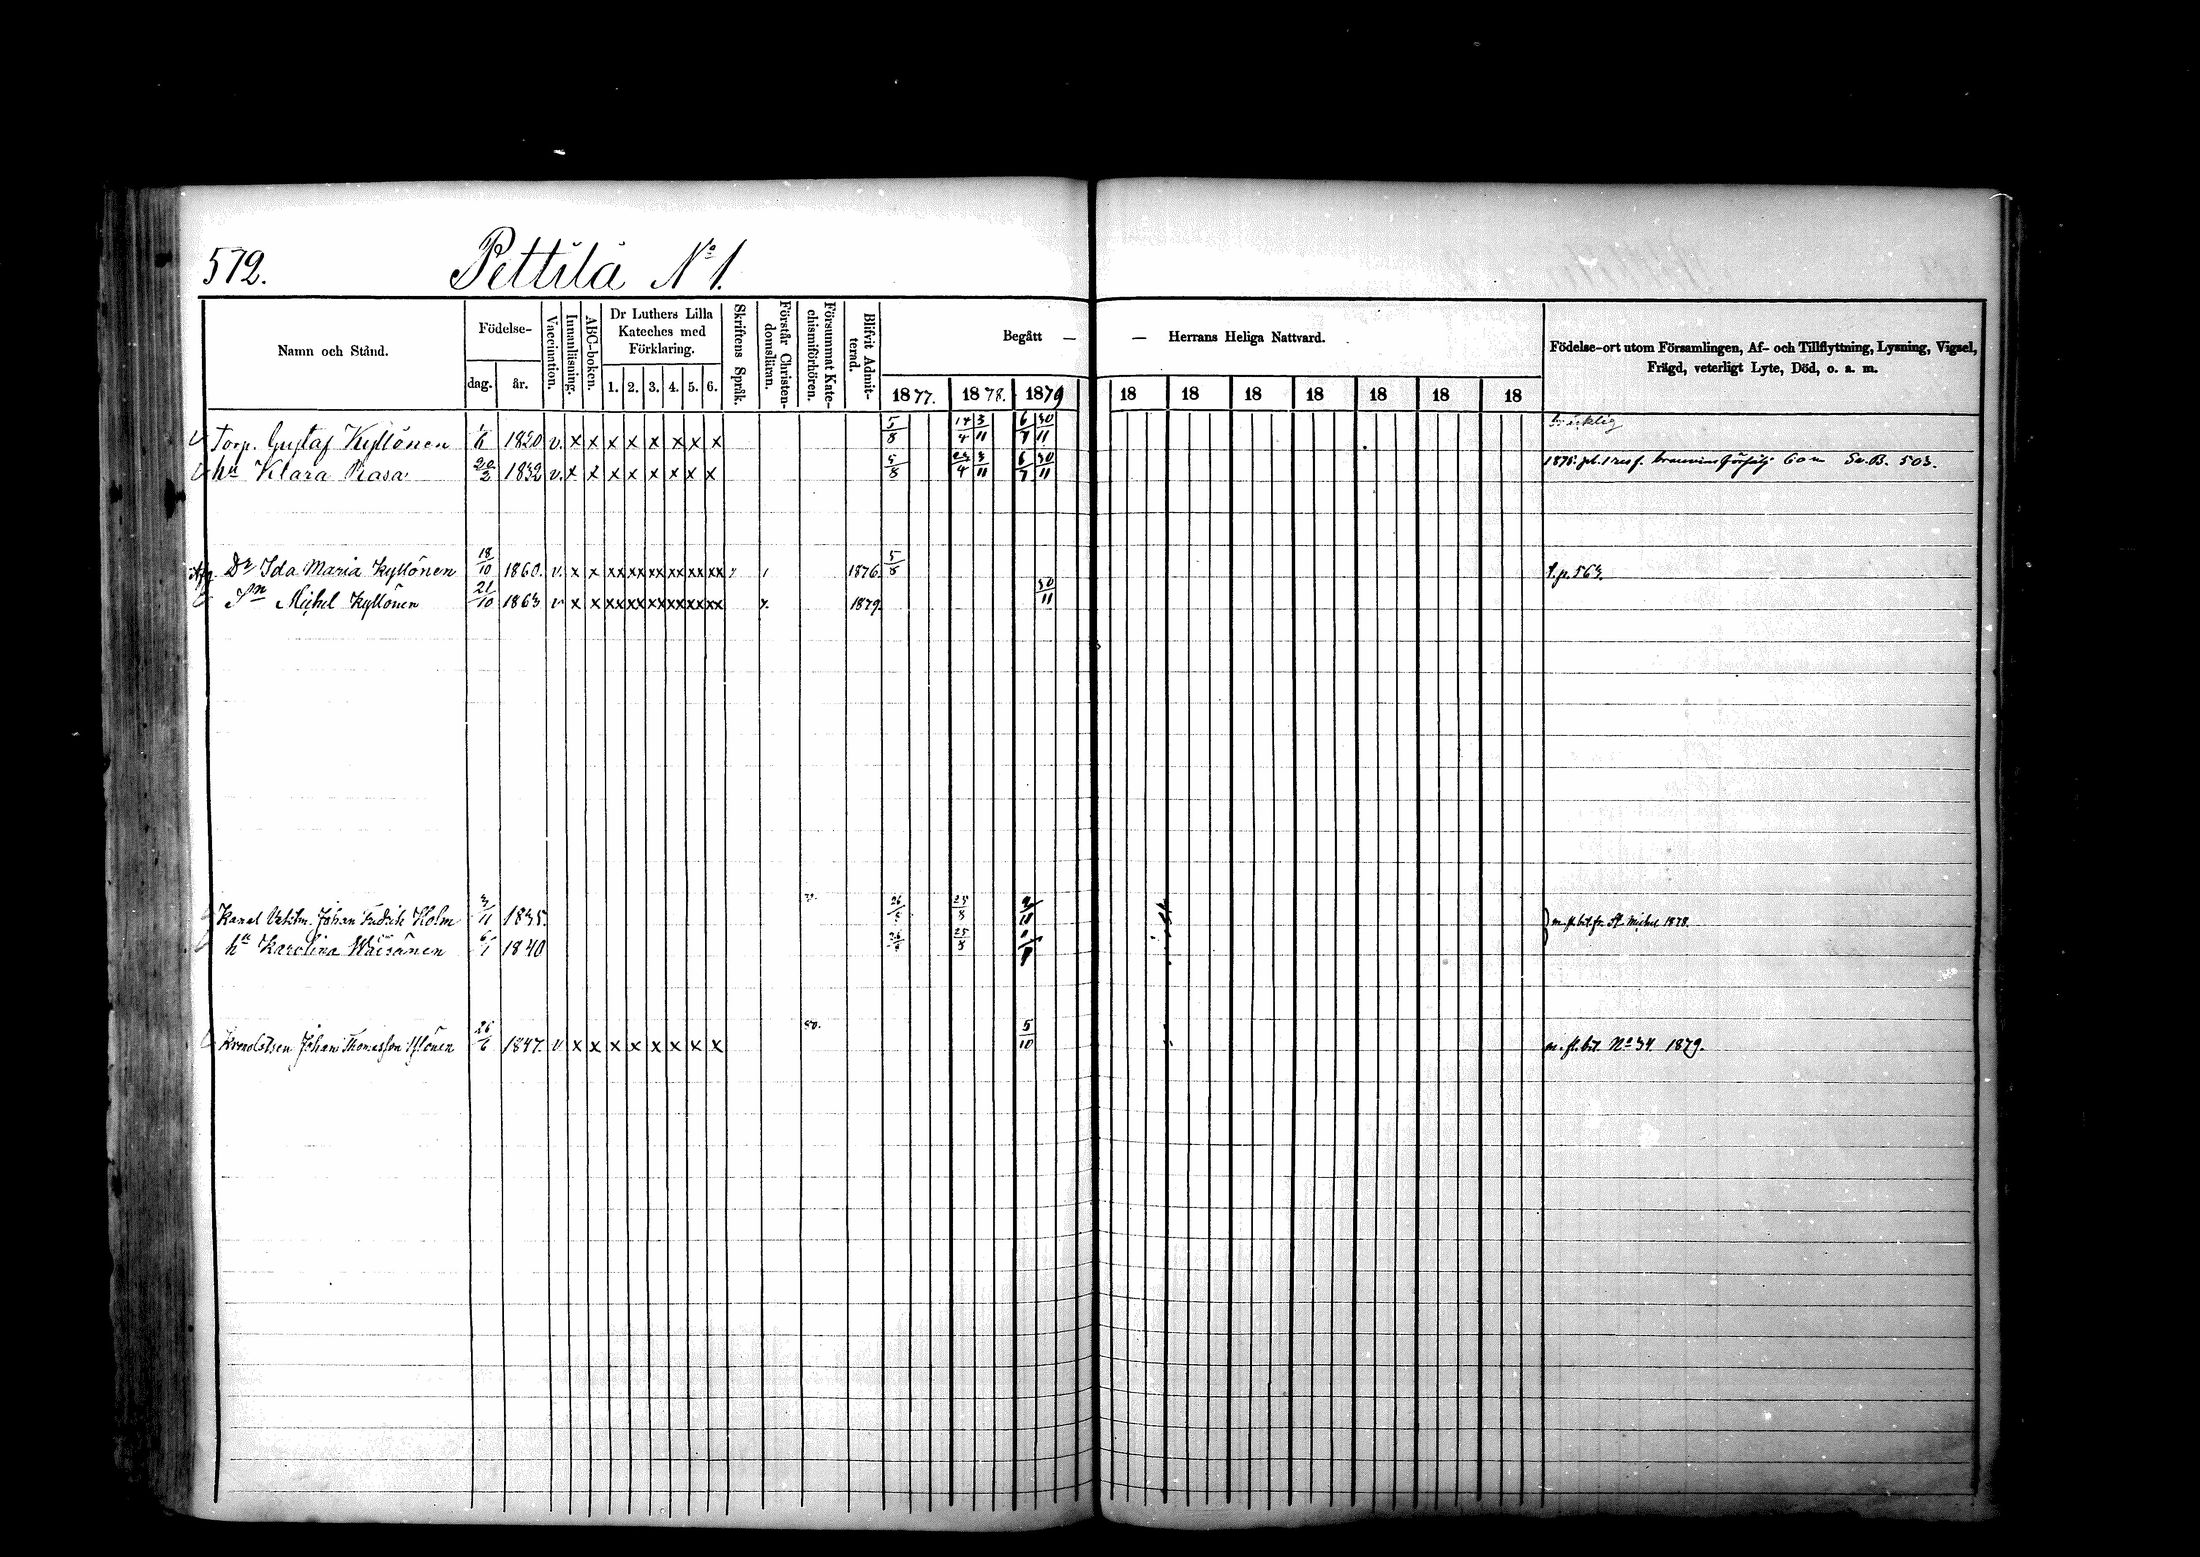 572. Pettilä No 1.
Namn och Stånd. Födelse- dag. år. Vaccination. Innanläsning. ABC-boken. Dr Luthers Lilla Kateches med Förklaring. 1. 2. 3. 4. 5. 6. Skriftens Språk. Förstår Christendomsläran. Försummat Katechismiförhören. Blifvit Admitterad. Begått — — Herrans Heliga Nattvard. Födelse-ort utom Församlingen, Af- och Tillflyttning, Lysning, Vigsel, Frägd, veterligt Lyte, Död, o. a. m.
1877. 1878. 1879 18 18 18 18 18 18 18
Torp. Gustaf Kyllönen 1820 v. x x x x x x x x 5/8 14/4 3/11 6/7 30/11
hu Klara Rasa 20/2 1832 v. x x x x x x x x 5/8 3/11 6/7 30/11 Sv.B. 503.
Dr Ida Maria Kyllönen 18/10 1860. v. x x xx xx xx xx xx xx 1876. 5/8 l.p. 563.
Sn Michel Kyllönen 21/10 1863 v x x xx xx xx xx xx xx 1879. 30/11
Johan Fredrik Holm 3/11 1835. 26/8 25/8 m. fl.bet. fr. St. Michel 1878.
hu Karolina Wäisänen 6/1 1840 26/8 25/8
Johan Thomasson 26/6 1847. v x x x x x x x x 80. 5/10 m. fl.bet. No 34 1879.